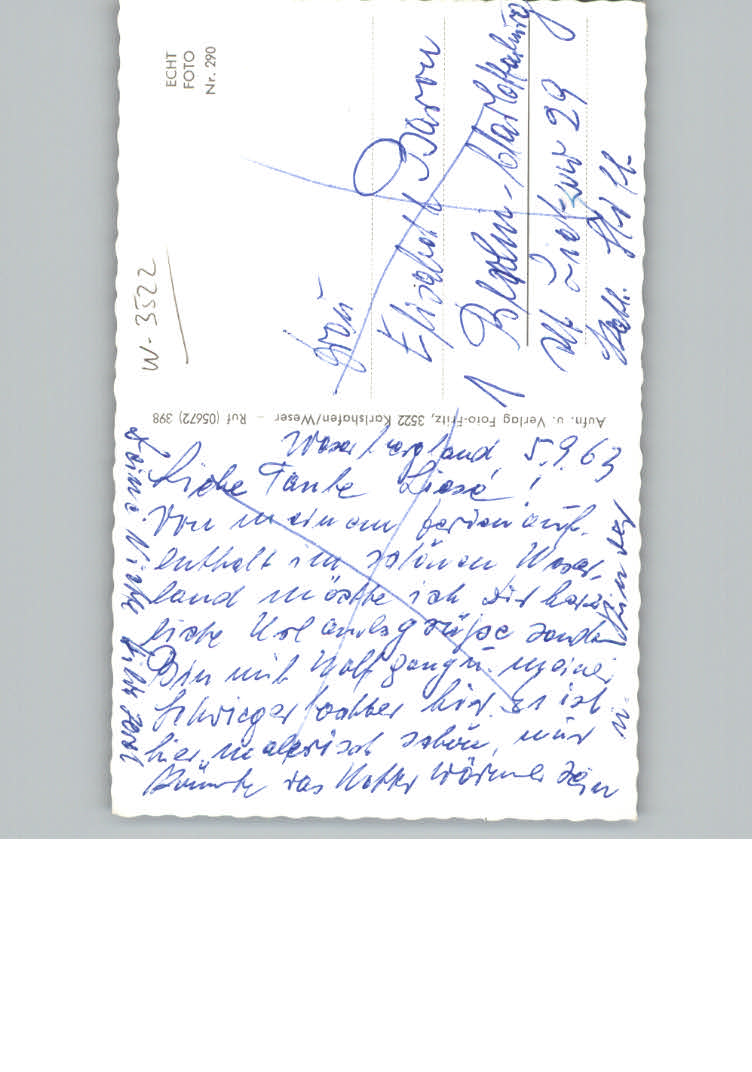 Weserbergland, 5.9.63
Liebe Tante Liese!
Von meinem Ferienauf-
enthalt im schönen Weser-
land möchte ich Dir herz-
liche Urlaubsgrüße senden
Bin mit Wolfgang u. meiner
Schwiegertochter hier. Es ist
hier malerisch schön, nur
könnte das Wetter wärmer sein
Deine Nichte
u. Kinder
Frau
Elisabeth Baron
1 Berlin-Charlottenburg
Alt Lietzow 29
ECHT
FOTO
Nr. 290
W-3522
Aufn. u. Verlag Foto-Fritz, 3522 Karlshafen/Weser – Ruf (05672) 398